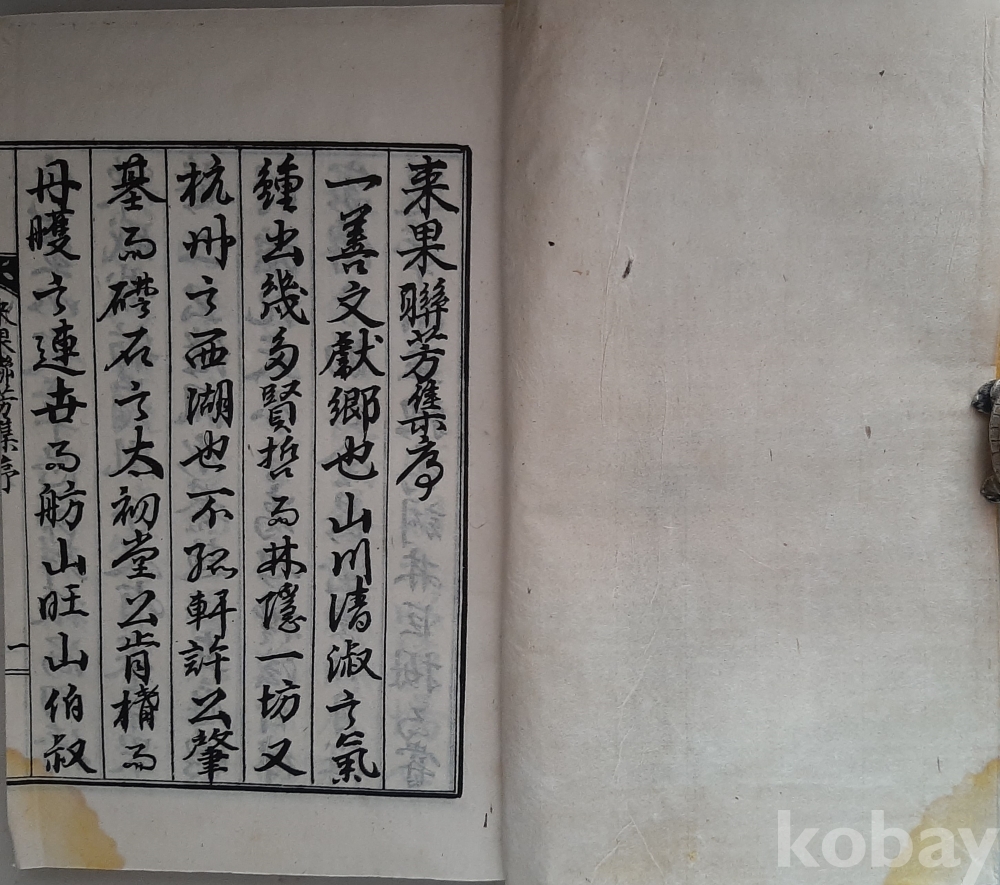 来果聯芳集序
一善文獻鄉也山川淸淑之氣
鍾出幾多賢哲而林隱一坊又
杭州之西湖也不孤軒許公肇
基而礎石之太初堂公肯構而
丹雘之連世而舫山旺山伯叔
來果聯芳集序
一
kobay